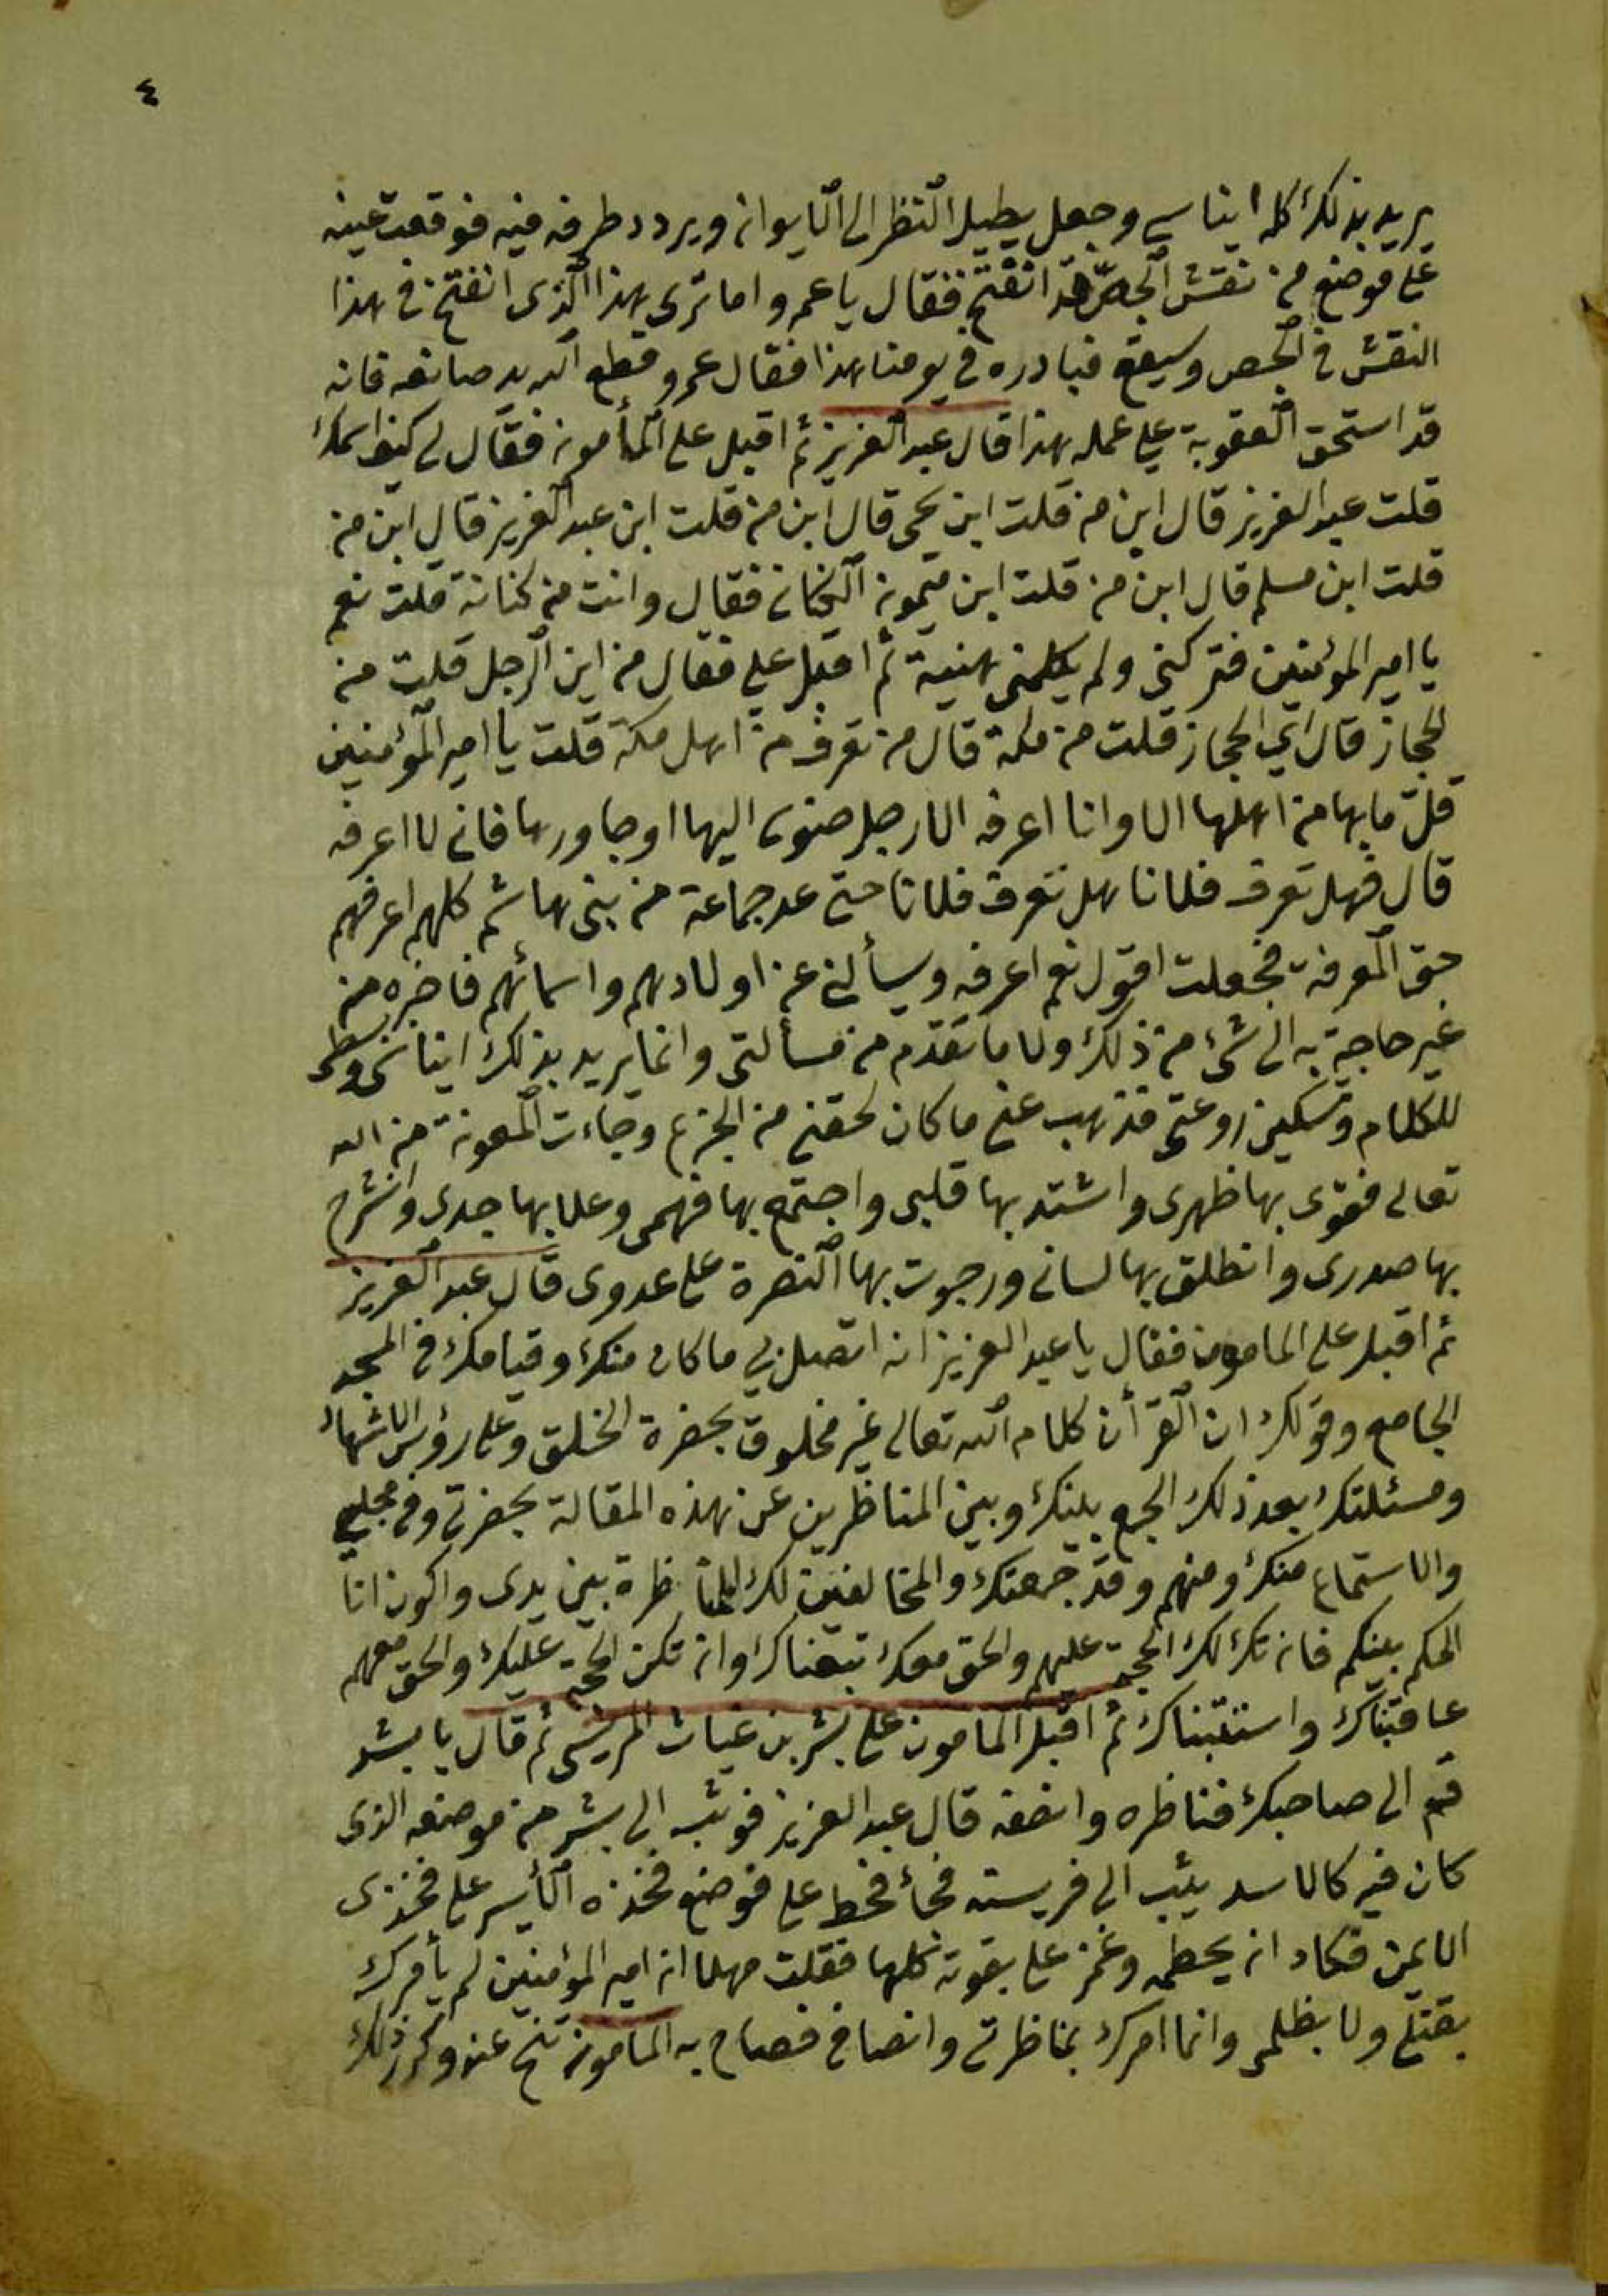 ٤
يريد بذلك كله ايناسي وجعل يطيل النظر الى الايوان ويردد طرفه فيه فوقعت عينه
على موضع من نقش الجص قد انفتح فقال يا عمرو اما ترى هذا الذى انفتح في هذا
النقش في الجص وسيقع فبادره في يومنا هذا فقال عمرو قطع الله يد صانعه فانه
قد استحق العقوبة على عمله هذا قال عبد العزيز ثم اقبل على المأمون فقال لي كيف اسمك
قلت عبد العزيز قال ابن من قلت ابن يحيى قال ابن من قلت ابن عبد العزيز قال ابن من
قلت ابن مسلم قال ابن من قلت ابن ميمون الكناني فقال وانت من كنانة قلت نعم
يا امير المؤمنين فتركني ولم يكلمني هنية ثم اقبل علي فقال من اين الرجل قلت من
الحجاز قال اي الحجاز قلت من مكة قال من تعرف من اهل مكة قلت يا امير المؤمنين
قل ما بها من اهلها الا وانا اعرفه الا رجل ضوى اليها او جاورها فاني لا اعرفه
قال فهل تعرف فلانا هل تعرف فلانا حتى عد جماعة من بنى هاشم كلهم اعرفهم
حق المعرفة فجعلت اقول نعم اعرفه ويسألني عن اولادهم واسمائهم فاخبره من
غير حاجة به الى شئ من ذلك ولا ما تقدم من مسألتى وانما يريد بذلك ايناسى وبسطى
للكلام وتسكين روعتى فذهب عني ما كان لحقني من الجزع وجاءت المعونة من الله
تعالى فقوى بها ظهرى واشتد بها قلبى واجتمع بها فهمى وعلا بها جدى وانشرح
بها صدرى وانطلق بها لسانى ورجوت بها النصرة على عدوى قال عبد العزيز
ثم اقبل على المامون فقال يا عبد العزيز انه اتصل بي ما كان منك وقيامك في المسجد
الجامع وقولك ان القرأن كلام الله تعالى غير مخلوق بحضرة الخلق وعلى رؤس الاشهاد
ومسئلتك بعد ذلك الجمع بينك وبين المناظرين عن هذه المقالة بحضرتي وفي مجلسي
والاستماع منك ومنهم وقد جمعتك والمخالفين لك للمناظرة بين يدى واكون انا
الحكم بينكم فان تكن لك الحجة عليهم والحق معك تبعناك وان تكن الحجة عليك والحق معهم
عاقبناك واستتبناك ثم اقبل المامون على بشر بن غياث المريسى ثم قال يا بشر
قم الى صاحبك فناظره وانصفه قال عبد العزيز فوثب الى بشر من موضعه الذى
كان فيه كالاسد يثب الى فريسته فجاء فحط على فوضع فخذه الأيسر على فخذى
الايمن فكاد ان يحطمه وغمز علي بقوته كلها فقلت مهلا ان امير المؤمنين لم يأمرك
بقتلي ولا بظلمى وانما امرك بمناظرتي وانصافي فصاح به المامون تنح عنه وكرر ذلك